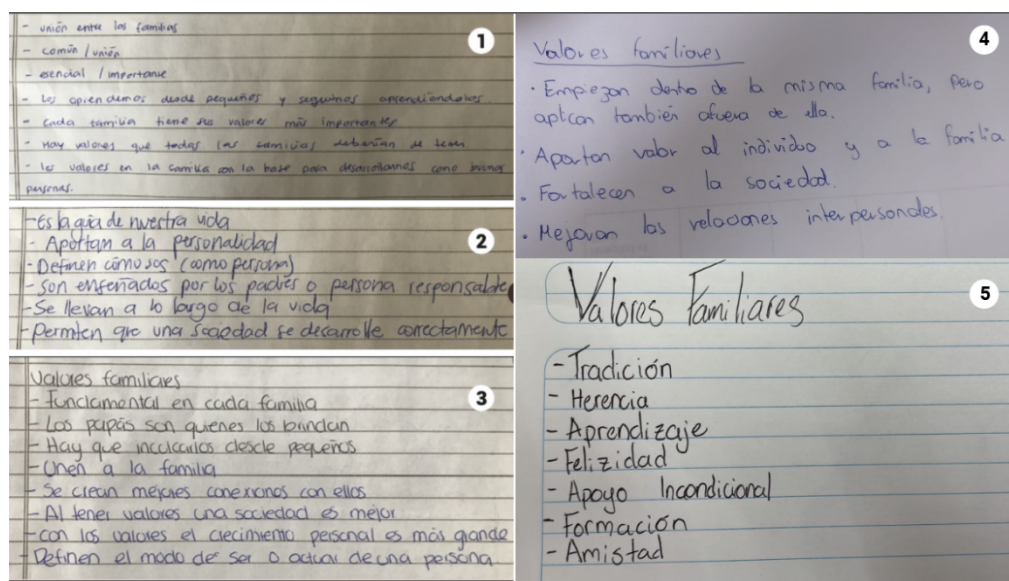 1
- unión entre las familias
- común / unión
- esencial / importante
- Los aprendemos desde pequeños y seguimos aprendiendolos
- Cada familia tiene sus valores más importantes
- Hay valores que todas las familias deberían de tener
- los valores en la familia son la base para desarrollarnos como buenas
personas.
2
- Es la guia de nuestra vida
- Aportan a la personalidad
- Definen cómo sos (como persona)
- son enseñados por los padres o persona responsable
- Se llevan a lo largo de la vida
- Permiten que una sociedad se desarrolle correctamente
3
Valores familiares
- Fundamental en cada familia
- Los papás son quienes los brindan
- Hay que inculcarlos desde pequeños
- Unen a la familia
- Se crean mejores conexiones con ellos
- Al tener valores una sociedad es mejor
- con los valores el crecimiento personal es más grande
- Definen el modo de ser o actuar de una persona
4
Valores familiares
· Empiezan dentro de la misma familia, pero
aplican también afuera de ella.
· Aportan valor al individuo y a la familia
· Fortalecen a la sociedad.
· Mejoran las relaciones interpersonales.
5
Valores Familiares
- Tradición
- Herencia
- Aprendizaje
- Felizidad
- Apoyo Incondicional
- Formación
- Amistad